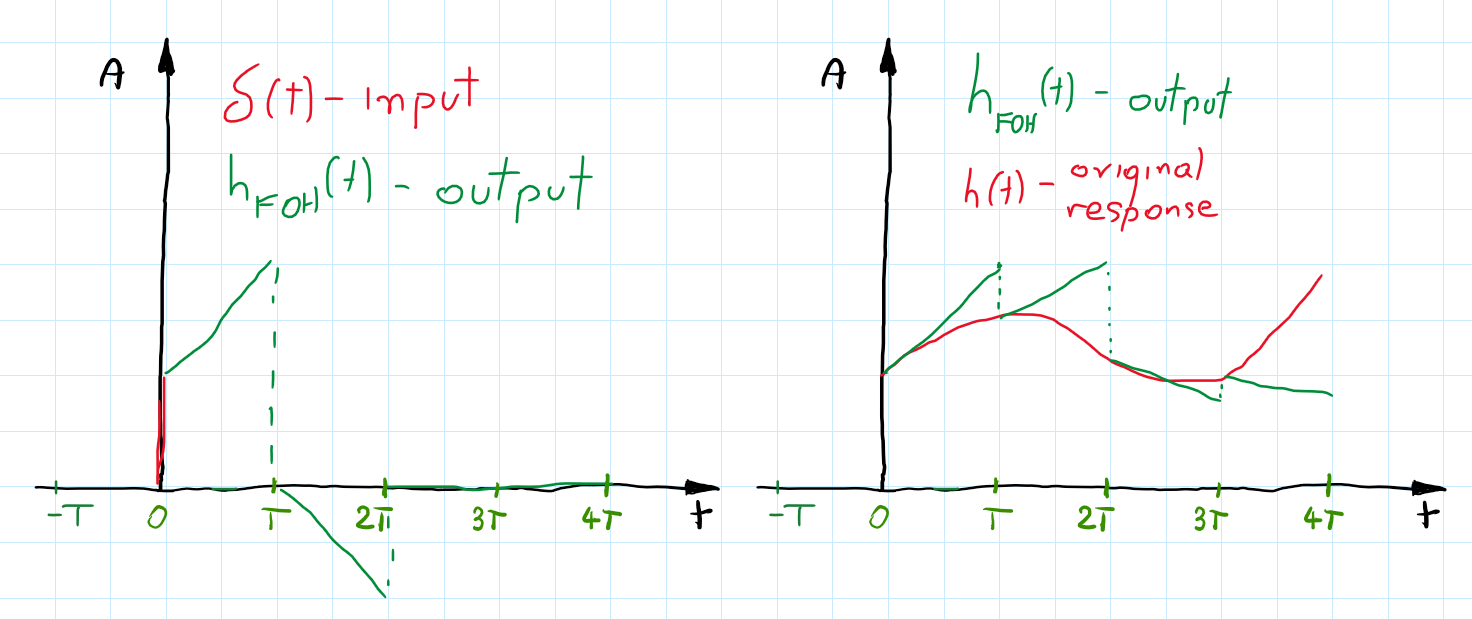 A
δ(t) - input
h_FOH(t) - output
-T 0 T 2T 3T 4T t
A
h_FOH(t) - output
h(t) - original
response
-T 0 T 2T 3T 4T t